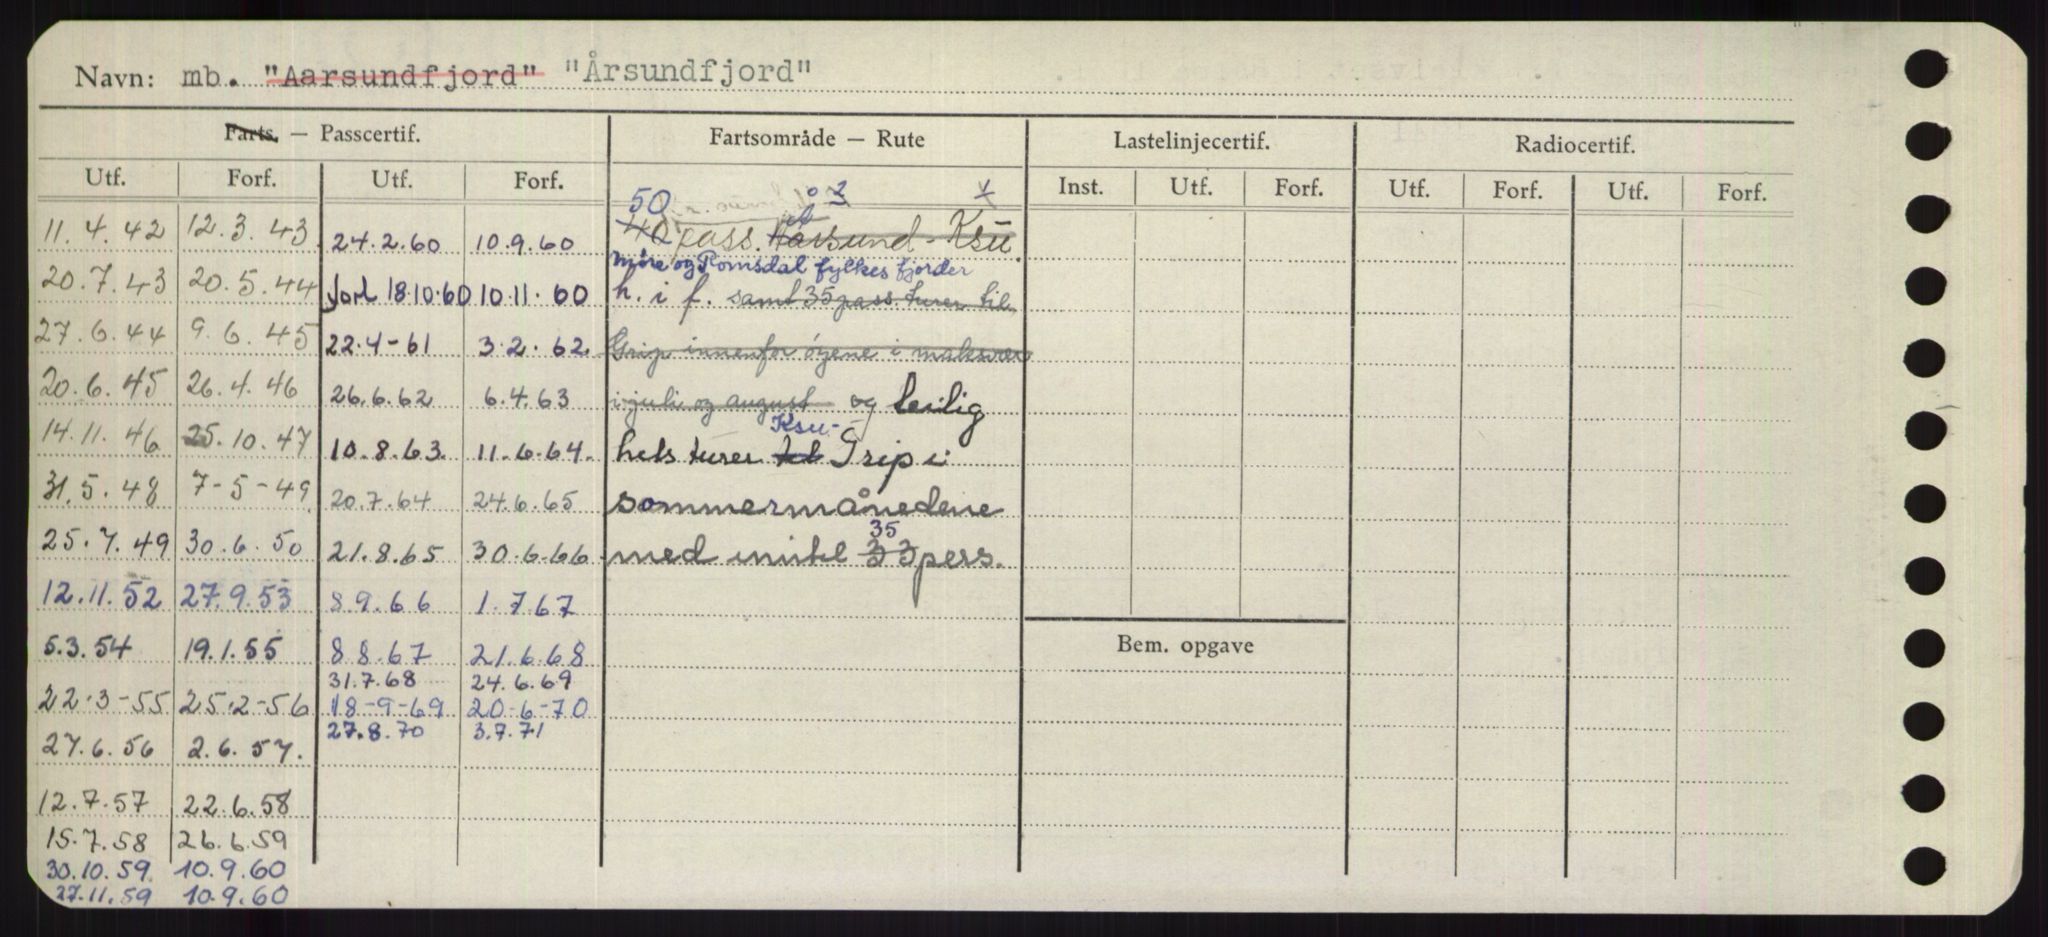 Navn: mb. "Aarsundfjord" "Årsundfjord"
Farts. — Passcertif. Fartsområde — Rute Lastelinjecertif. Radiocertif.
Utf. Forf. Utf. Forf. Inst. Utf. Forf. Utf. Forf. Utf. Forf.
50
11.4.42 12.3.43 24.2.60 10.9.60 40 pass. Aarsund - Ksu.
Møre og Romsdal fylkes fjorder
20.7.43 20.5.44 forl 18.10.60 10.11.60 h. i f. samt 35 pass. turer til
27.6.44 9.6.45 22.4-61 3.2.62 Grip innenfor øyene i maksvær
20.6.45 26.4.46 26.6.62 6.4.63 i juli og august og leilig
Ksu-
14.11.46 25.10.47 10.8.63. 11.6.64. hets turer til Grip i
31.5.48 7-5-49 20.7.64 24.6.65 sommermånedene
35
25.7.49 30.6.50 21.8.65 30.6.66 med inntil 33 pers.
12.11.52 27.9.53 8 9.66 1.7.67
5.3.54 19.1.55 8 8.67 21.6.68
Bem. opgave
31.7.68 24.6.69
22.3-55 25.2-56 18-9-69 20-6-70
27.8.70 3.7.71
27.6.56 2.6.57.
12.7.57 22.6.58
15.7.58 26.6.59
30.10.59 10.9.60
27.11.59 10.9.60